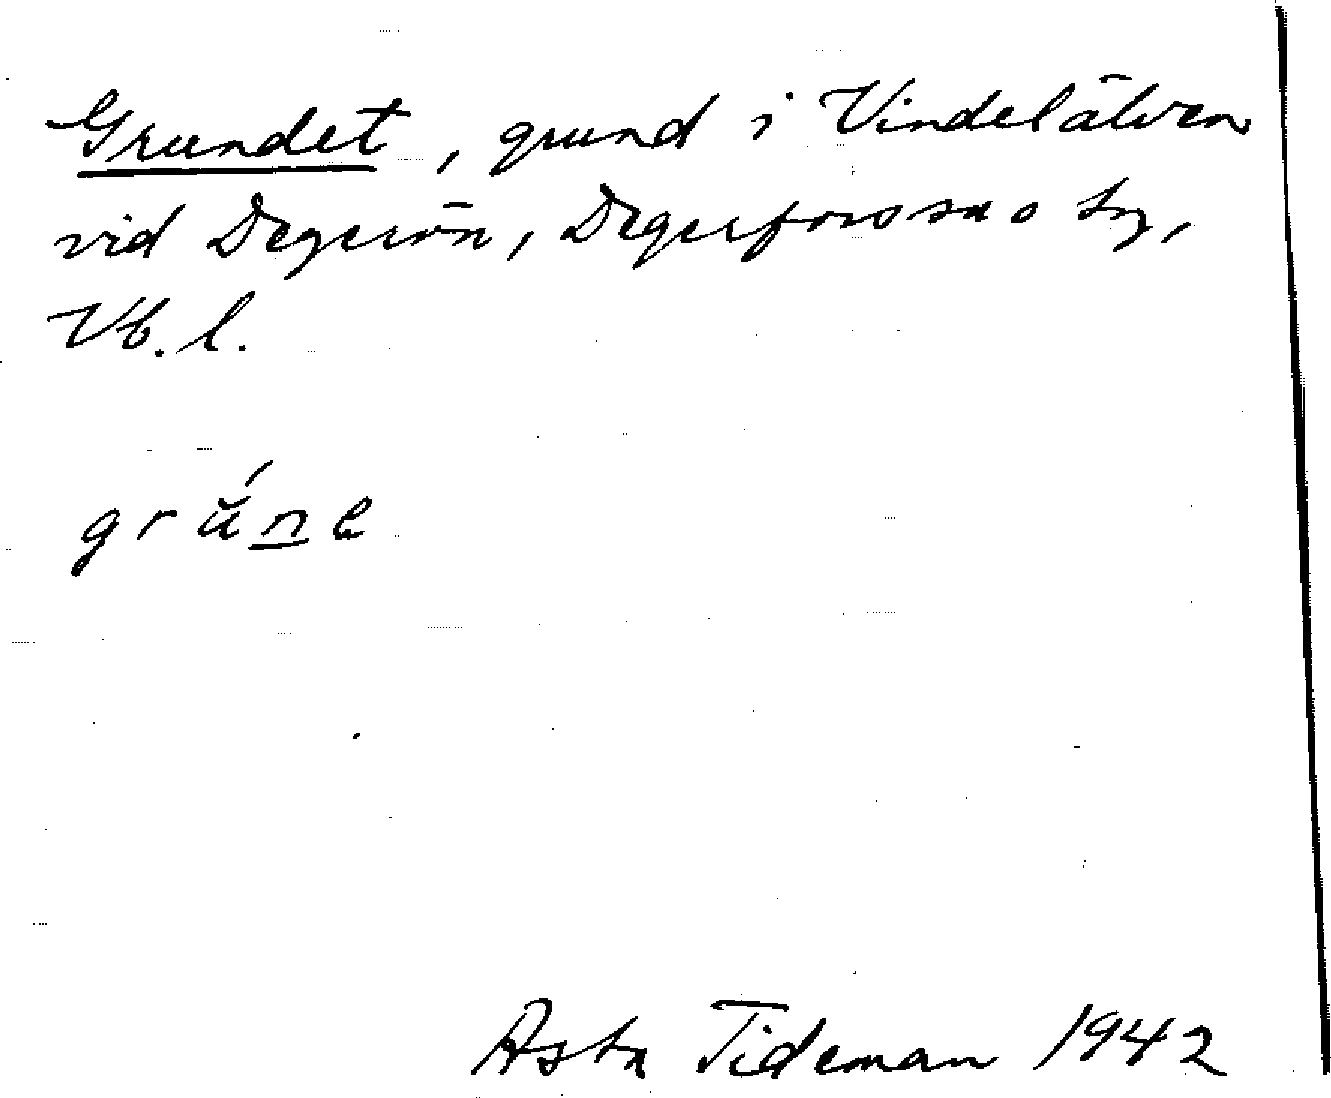 Grundet, grund i Vindelälven
vid Degerön, Degerfors sn o by,
Vb. l.
grŭ́ne
Asta Tideman 1942